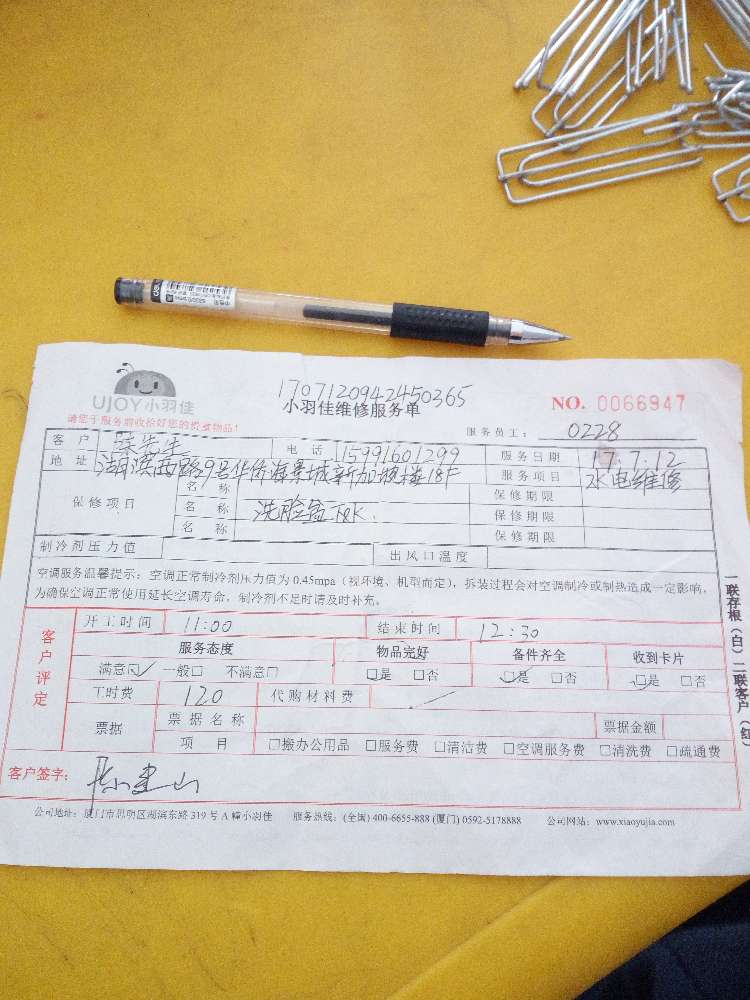 UJOY小羽佳
1707120942450365
小羽佳维修服务单
NO. 0066947
请您于服务前收拾好您的贵重物品!
服务员工: 0228
客户 陈先生 电话 15991601299 服务日期 17.7.12
地址 湖滨西路9号华侨海景城新加坡楼18F 服务项目 水电维修
保修项目 名称 保修期限
名称 洗脸盆下水 保修期限
名称 保修期限
制冷剂压力值 出风口温度
空调服务温馨提示:空调正常制冷剂压力值为 0.45mpa(视环境、机型而定),拆装过程会对空调制冷或制热造成一定影响,
为确保空调正常使用延长空调寿命,制冷剂不足时请及时补充。
客户评定
开工时间 11:00 结束时间 12:30
服务态度 物品完好 备件齐全 收到卡片
满意☑ 一般□ 不满意□ □是 □否 ☑是 □否 ☑是 □否
工时费 120 代购材料费
票据 票据名称 票据金额
项目 □搬办公用品 □服务费 □清洁费 □空调服务费 □清洗费 □疏通费
客户签字: 陈建山
公司地址:厦门市思明区湖滨东路 319 号 A 幢小羽佳 服务热线:(全国) 400-6655-888 (厦门) 0592-5178888 公司网站:www.xiaoyujia.com
一联存根(白)二联客户(红)